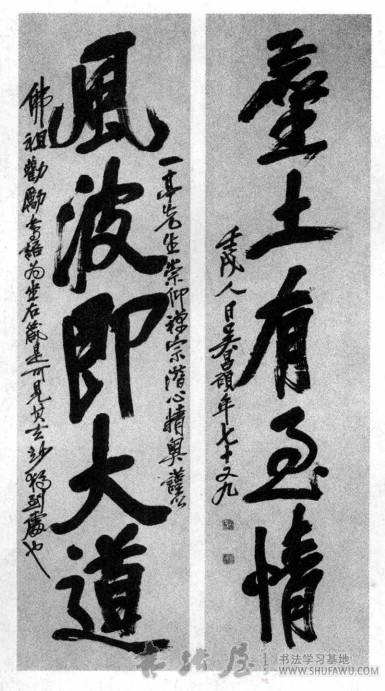 塵土有至情
壬戌人日吳昌碩年七十又九
一亭先生崇仰禪宗潛心精奧謹以
風波即大道
佛祖勸勵書語為坐右箴是可見其玄妙獨到處也
书法学习基地
WWW.SHUFAWU.COM